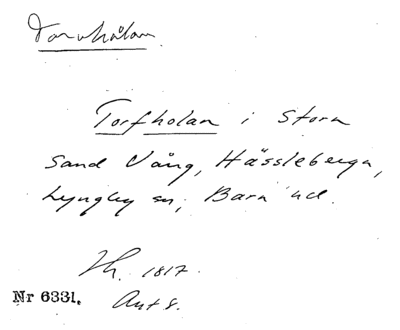 Torvhålan
Torfholan i Stora
Sand Vång, Hässleberga,
Lyngby sn, Bara hd.
Lh. 1817.
Nr 6331. Akt 8.